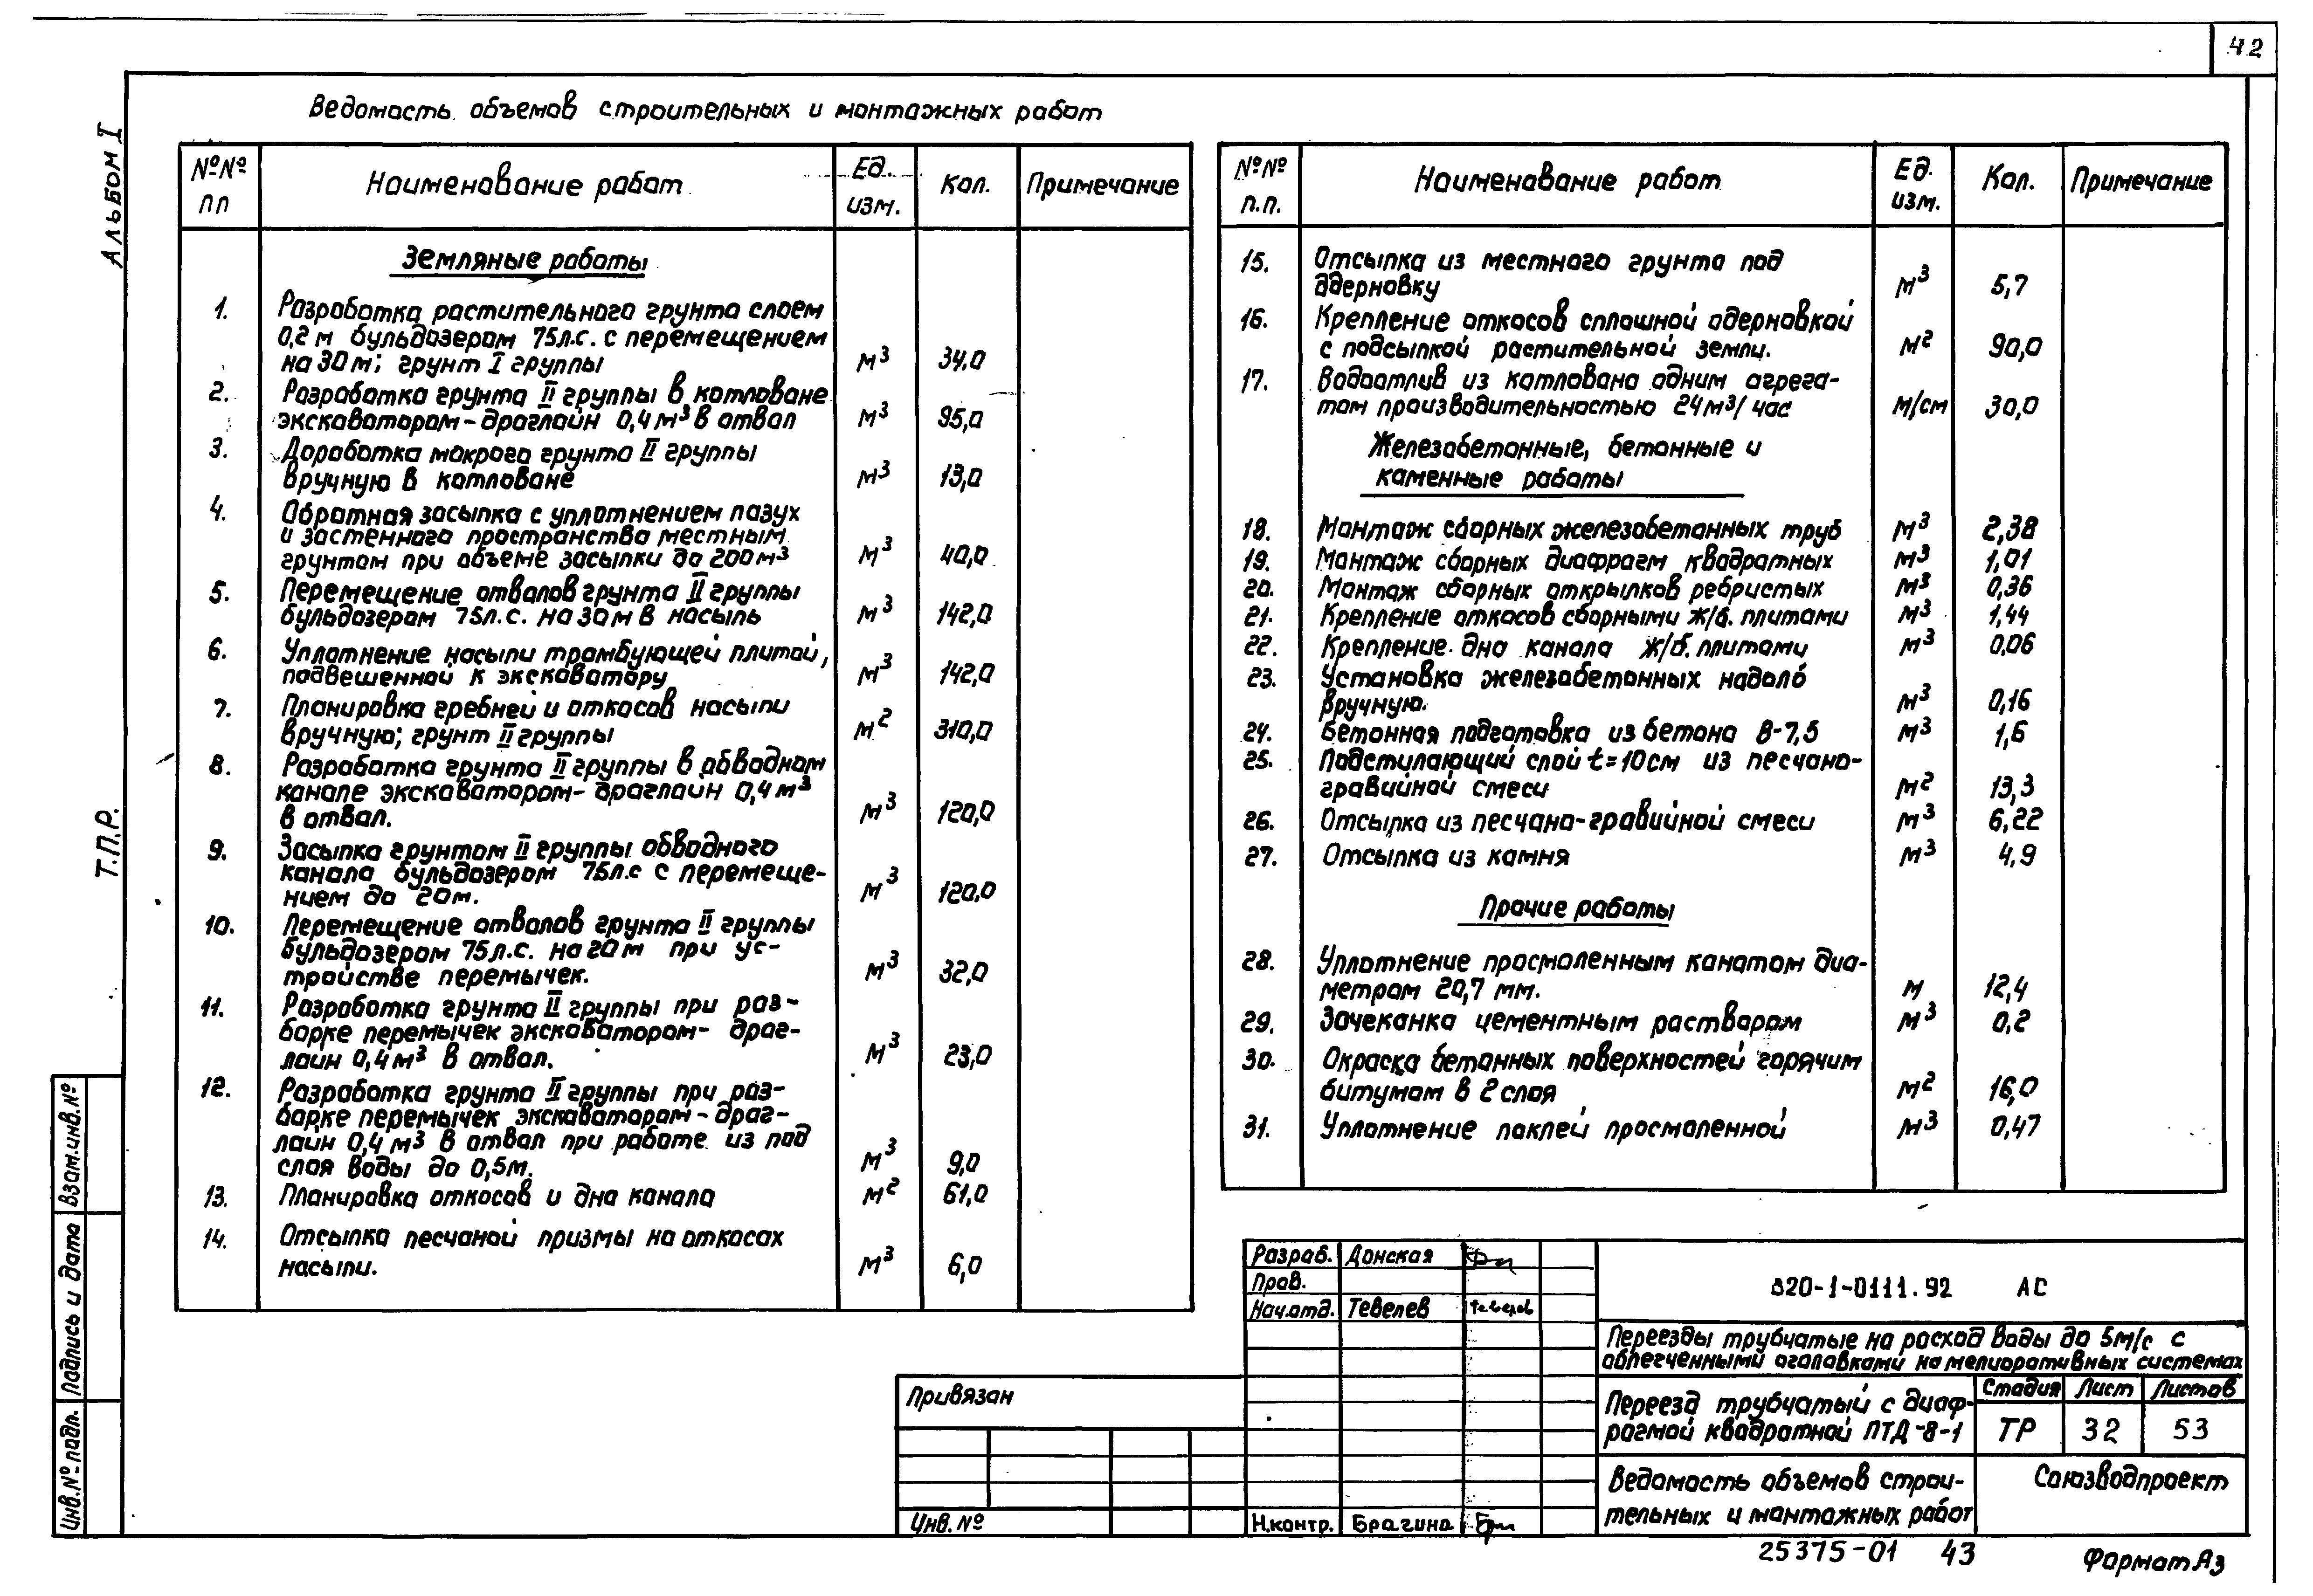 42
Ведомость объемов строительных и монтажных работ
АЛЬБОМ I
Т.П.Р.
№№ пп
Наименование работ
Ед. изм.
Кол.
Примечание
Земляные работы
1. Разработка растительного грунта слоем
0,2 м бульдозером 75л.с. с перемещением
на 30м; грунт I группы м³ 34,0
2. Разработка грунта II группы в котловане
экскаватором-драглайн 0,4м³ в отвал м³ 95,0
3. Доработка мокрого грунта II группы
вручную в котловане м³ 13,0
4. Обратная засыпка с уплотнением пазух
и застенного пространства местным
грунтом при объеме засыпки до 200м³ м³ 40,0
5. Перемещение отвалов грунта II группы
бульдозером 75л.с. на 30м в насыпь м³ 142,0
6. Уплотнение насыпи трамбующей плитой,
подвешенной к экскаватору м³ 142,0
7. Планировка гребней и откосов насыпи
вручную; грунт II группы м² 310,0
8. Разработка грунта II группы в обводном
канале экскаватором-драглайн 0,4м³
в отвал. м³ 120,0
9. Засыпка грунтом II группы обводного
канала бульдозером 75л.с с перемеще-
нием до 20м. м³ 120,0
10. Перемещение отвалов грунта II группы
бульдозером 75л.с. на 20м при ус-
тройстве перемычек. м³ 32,0
11. Разработка грунта II группы при раз-
борке перемычек экскаватором-драг-
лайн 0,4м³ в отвал. м³ 23,0
12. Разработка грунта II группы при раз-
борке перемычек экскаватором-драг-
лайн 0,4м³ в отвал при работе из под
слоя воды до 0,5м. м³ 9,0
13. Планировка откосов и дна канала м² 61,0
14. Отсыпка песчаной призмы на откосах
насыпи. м³ 6,0
№№ п.п.
Наименование работ
Ед. изм.
Кол.
Примечание
15. Отсыпка из местного грунта под
одерновку м³ 5,7
16. Крепление откосов сплошной одерновкой
с подсыпкой растительной земли. м² 90,0
17. Водоотлив из котлована одним агрега-
том производительностью 24м³/час м/см 30,0
Железобетонные, бетонные и
каменные работы
18. Монтаж сборных железобетонных труб м³ 2,38
19. Монтаж сборных диафрагм квадратных м³ 1,01
20. Монтаж сборных открылков ребристых м³ 0,36
21. Крепление откосов сборными ж/б. плитами м³ 1,44
22. Крепление дна канала ж/б. плитами м³ 0,06
23. Установка железобетонных надолб
вручную. м³ 0,16
24. Бетонная подготовка из бетона В-7,5 м³ 1,6
25. Подстилающий слой t=10см из песчано-
гравийной смеси м² 13,3
26. Отсыпка из песчано-гравийной смеси м³ 6,22
27. Отсыпка из камня м³ 4,9
Прочие работы
28. Уплотнение просмоленным канатом диа-
метром 20,7 мм. м 12,4
29. Зачеканка цементным раствором м³ 0,2
30. Окраска бетонных поверхностей горячим
битумом в 2 слоя м² 16,0
31. Уплотнение паклей просмоленной м³ 0,47
Взам.инв.№
Подпись и дата
Инв.№ подл.
Привязан
Инв. №
Разраб. Донская
Пров.
Нач.отд. Тевелев
Н.контр. Брагина
820-1-0111.92 АС
Переезды трубчатые на расход воды до 5м/с с
облегченными оголовками на мелиоративных системах
Переезд трубчатый с диаф-
рагмой квадратной ПТД-8-1
Стадия Лист Листов
ТР 32 53
Ведомость объемов строи-
тельных и монтажных работ
Союзводпроект
25375-01 43
Формат А3